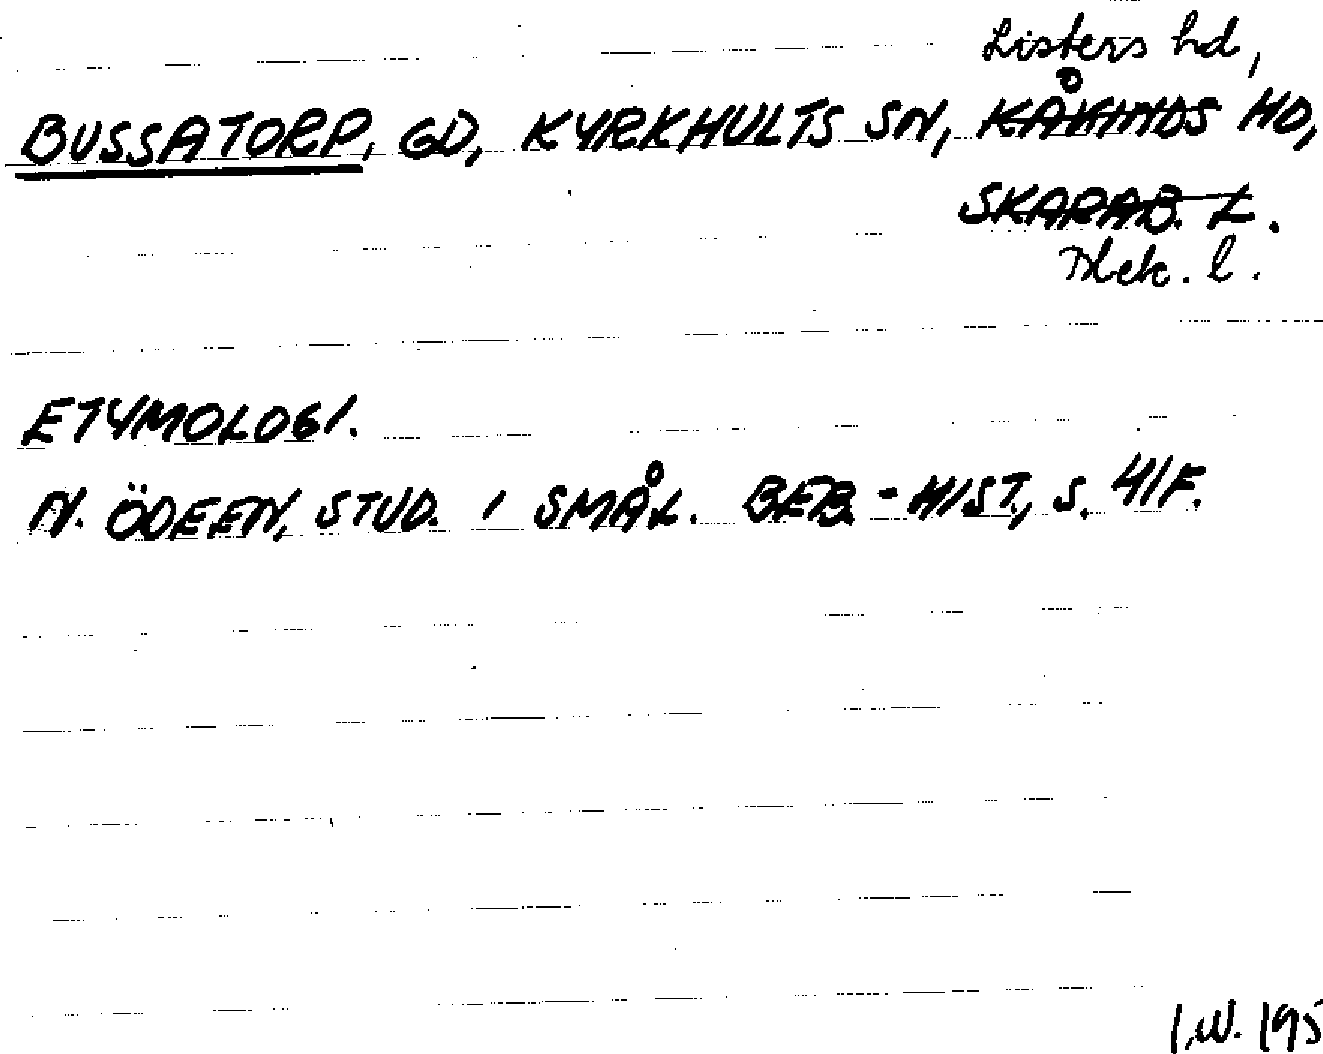 Listers hd,
BUSSATORP, GD, KYRKHULTS SN, KÅKINDS HD,
SKARAB. L.
Blek. l.
ETYMOLOGI.
N. ÖDEEN, STUD. I SMÅL. BEB.-HIST., S. 41F.
I.W. 195